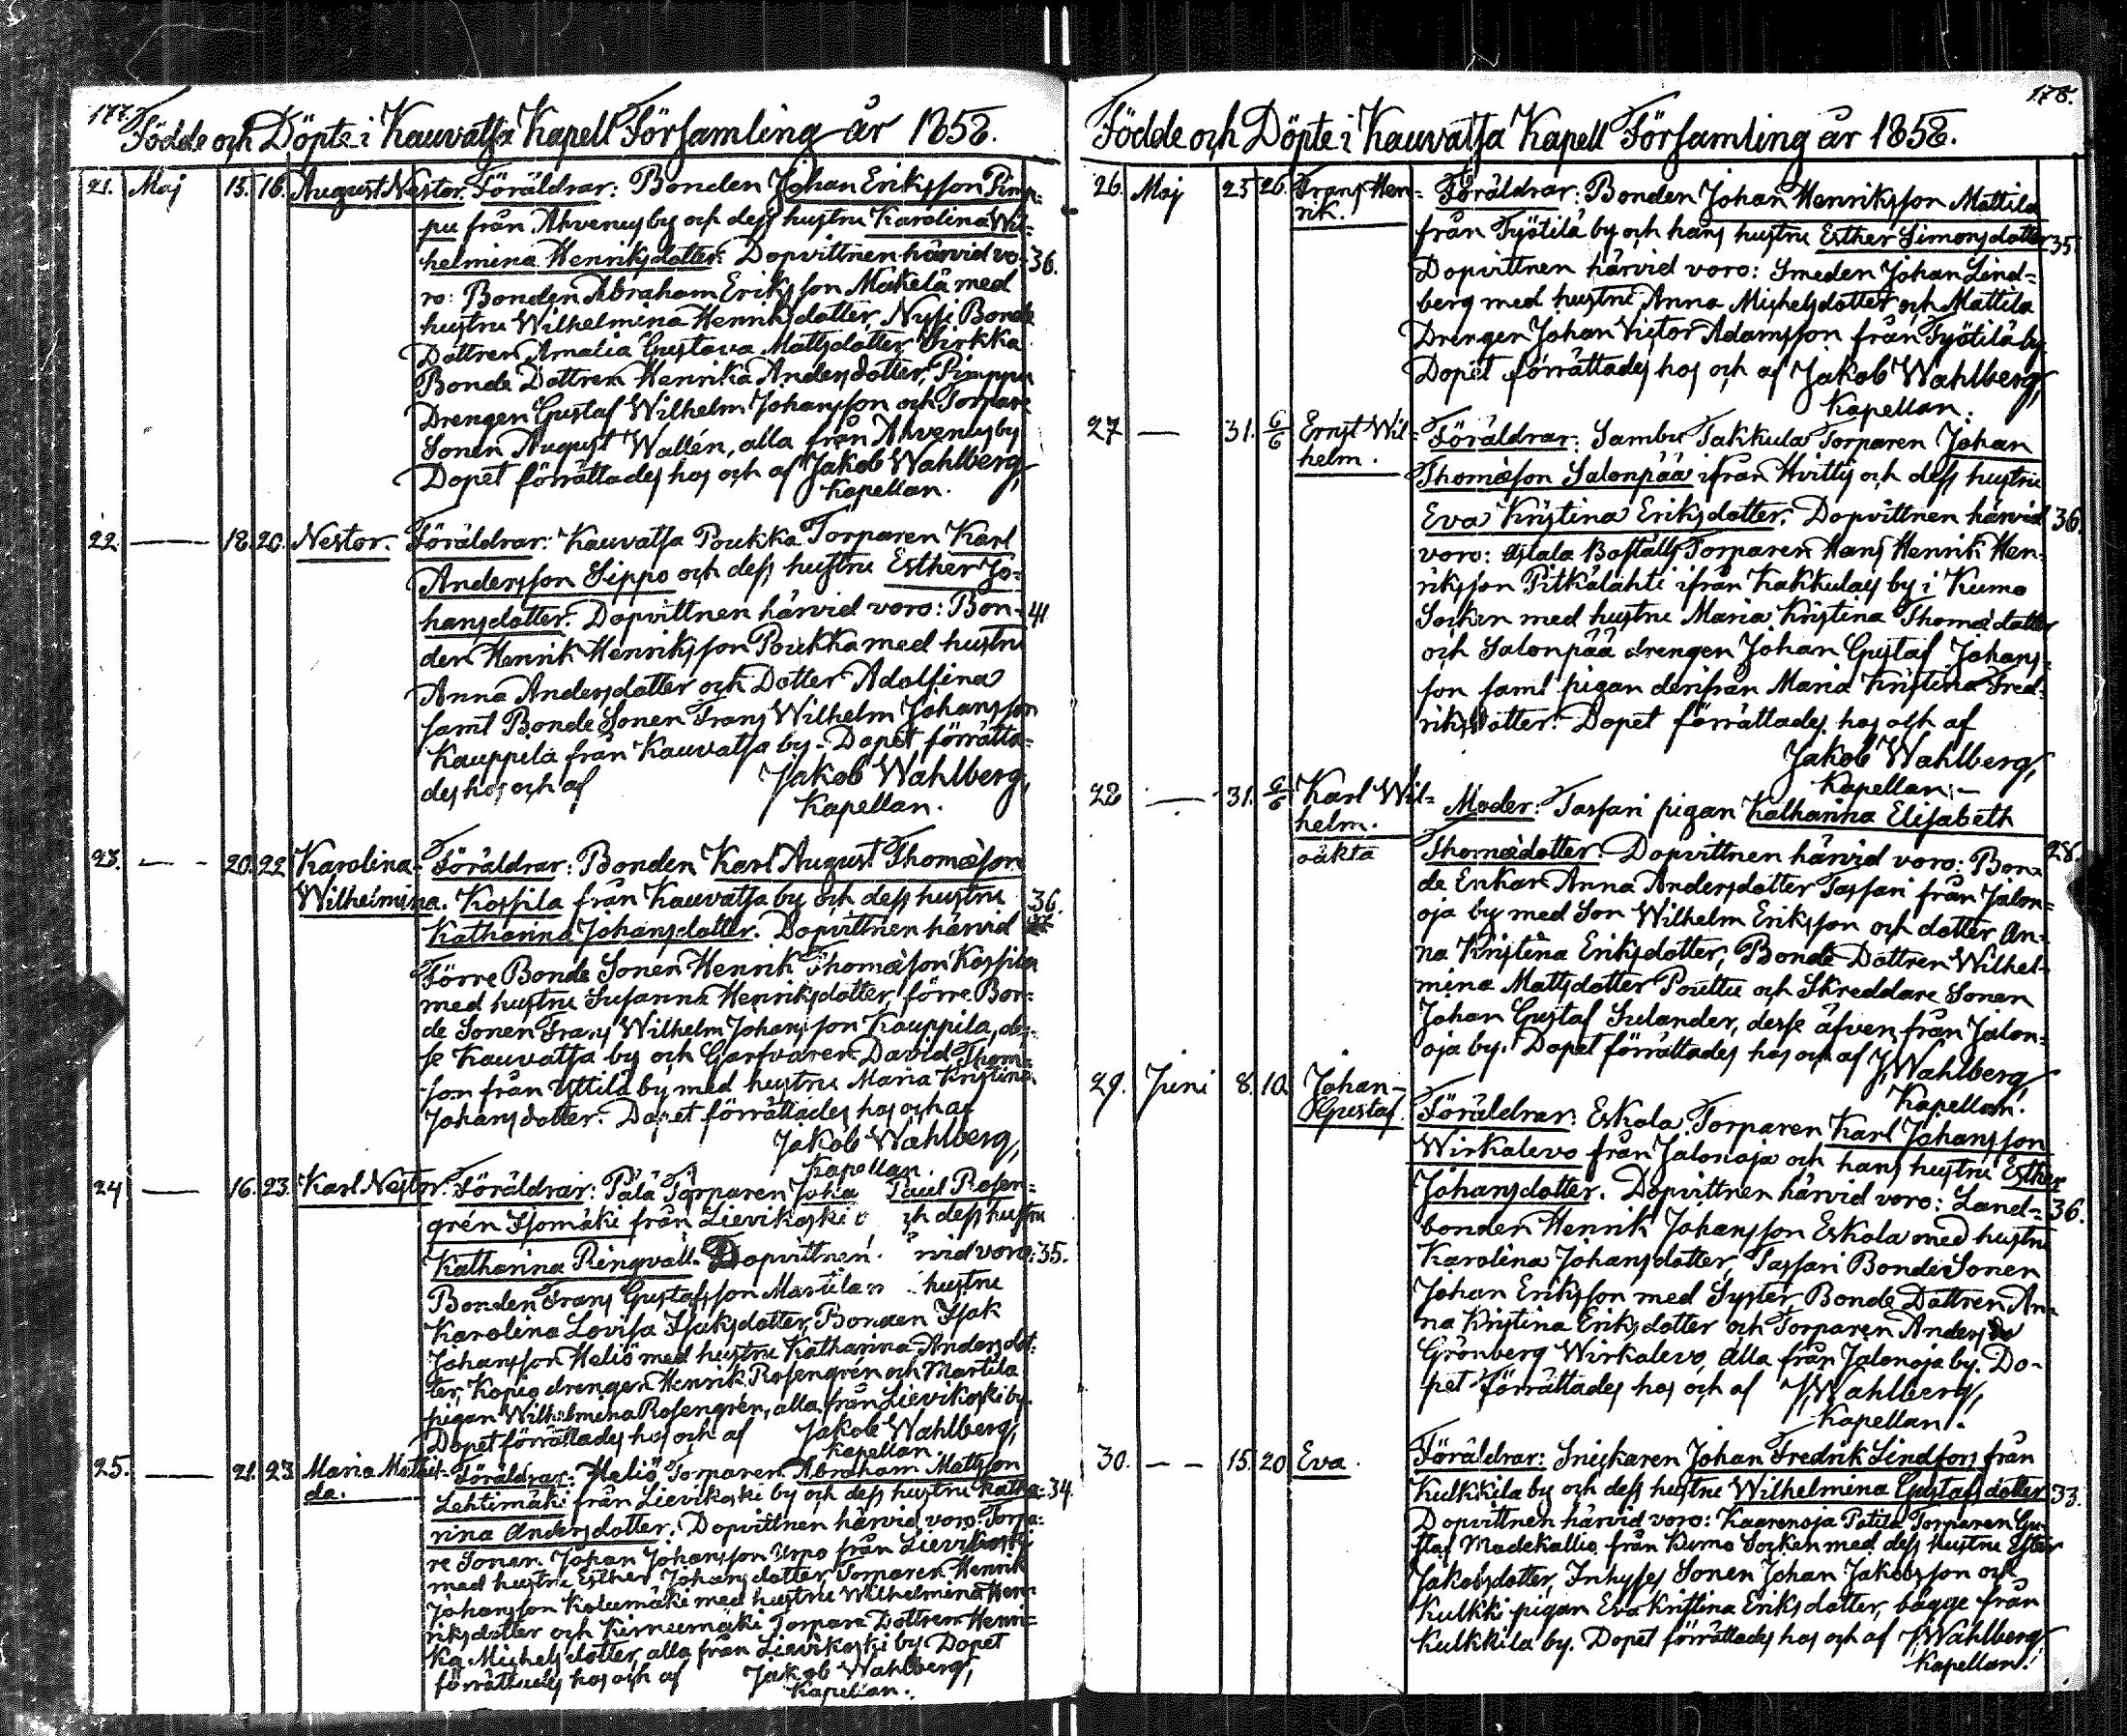 177.
Födde och Döpte i Kauvatsa Kapell Församling år 1858.
21. Maj 15. 16. August Nestor. Föräldrar: Bonden Johan Eriksson Pimp-
pu från Ahvenusby och dess hustru Karolina Wil-
helmina Henriksdotter. Dopvittnen härvid vo- 36.
ro: Bonden Abraham Eriksson Mäkelä med
hustru Wilhelmina Henriksdotter, Nysi Bonde
Dottren Amalia Gustava Mattsdotter Pirkka
Bonde Dottren Henrika Andersdotter, Pimppu
Drengen Gustaf Wilhelm Johansson och Torpare
Sonen August Wallén, alla från Ahvenusby
Dopet förrättades hos och af Jakob Wahlberg,
Kapellan.
22. — 18. 20. Nestor. Föräldrar: Kauvatsa Poukka Torparen Karl
Andersson Sippo och dess hustru Esther Jo-
hansdotter. Dopvittnen härvid voro: Bon- 41
den Henrik Henriksson Poukka med hustru
Anna Andersdotter och Dotter Adolfina
samt Bonde Sonen Frans Wilhelm Johansson
Kauppila från Kauvatsa by. Dopet förrätta-
des hos och af Jakob Wahlberg,
Kapellan.
23. — 20. 22 Karolina Föräldrar: Bonden Karl August Thomæson
Wilhelmina. Kossila från Kauvatsa by och dess hustru 36.
Katharina Johansdotter. Dopvittnen härvid
Förre Bonde Sonen Henrik Thomæson Kossila
med hustru Susanna Henriksdotter, förre Bon-
de Sonen Frans Wilhelm Johansson Kauppila, des-
se Kauvatsa by och Garfvaren David Thom-
son från Yttilä by med hustru Maria Kristina
Johansdotter. Dopet förrättades hos och af
Jakob Wahlberg,
Kapellan.
24 — 16. 23. Karl Nestor. Föräldrar: Pälä Torparen Paul Rosen-
grén Isomäki från Lievikoski dess hustru
Katharina Ringvall. Dopvittnen voro: 35.
Bonden Frans Gustafsson Martila hustru
Karolina Lovisa Isaksdotter, Bonden Isak
Johansson Heliö med hustru Katharina Andersdot-
ter, Kopio drengen Henrik Rosengrén och Martila
pigan Wilhelmina Rosengrén, alla från Lievikoski by.
Dopet förrättades hos och af Jakob Wahlberg,
Kapellan.
25. — 21. 23 Maria Mathil- Föräldrar: Heliö Torparen Abraham Mattsson
da. Lehtimäki från Lievikoski by och dess hustru Katha- 34.
rina Andersdotter. Dopvittnen härvid voro: Torpa-
re Sonen Johan Johansson Urpo från Lievikoski
med hustru Esther Johansdotter, Torparen Henrik
Johansson Kolumäki med hustru Wilhelmina Hen-
riksdotter och Kirnumäki Torpare Dottren Henri-
ka Michelsdotter, alla från Lievikoski by. Dopet
förrättades hos och af Jakob Wahlberg,
Kapellan.
178.
Födde och Döpte i Kauvatsa Kapell Församling år 1858.
26. Maj 25 26. Frans Hen- Föräldrar: Bonden Johan Henriksson Mattila
rik. från Työtilä by och hans hustru Esther Simonsdotter 35.
Dopvittnen härvid voro: Smeden Johan Lind-
berg med hustru Anna Michelsdotter och Mattila
Drengen Johan Victor Adamsson från Työtilä by
Dopet förrättades hos och af Jakob Wahlberg,
Kapellan.
27 — 31. 6/6 Ernst Wil- Föräldrar: Sambu Takkula Torparen Johan
helm. Thomæson Salonpää ifrån Hvittis och dess hustru
Eva Kristina Eriksdotter. Dopvittnen härvid 36
voro: Anjala Boställs Torparen Hans Henrik Hen-
riksson Pitkälahti ifrån Kakkulais by i Kumo
Socken med hustru Maria Kristina Thomædotter
och Salonpää drengen Johan Gustaf Johans-
son samt pigan derifrån Maria Kristina Fred-
riksdotter. Dopet förrättades hos och af
Jakob Wahlberg,
Kapellan.
28 — 31. 6/6 Karl Wil- Moder: Tassari pigan Katharina Elisabeth
helm. Thomædotter. Dopvittnen härvid voro: Bon- 28.
oäkta de Enkan Anna Andersdotter Tassari från Jalon-
oja by med Son Wilhelm Eriksson och dotter An-
na Kristina Eriksdotter, Bonde Dottren Wilhel-
mina Mattsdotter Pouttu och Skreddare Sonen
Johan Gustaf Sulander, desse äfven från Jalon-
oja by. Dopet förrättades hos och af J. Wahlberg,
Kapellan.
29. Juni 8. 10. Johan Föräldrar: Eskola Torparen Karl Johansson
Gustaf. Wirkalevo från Jalonoja och hans hustru Esther
Johansdotter. Dopvittnen härvid voro: Land- 36.
bonden Henrik Johansson Eskola med hustru
Karolina Johansdotter, Tassari Bonde Sonen
Johan Eriksson med Syster Bonde Dottren An-
na Kristina Eriksdotter och Torparen Anders
Grönberg Wirkalevo, alla från Jalonoja by. Do-
pet förrättades hos och af J. Wahlberg,
Kapellan.
30. — 15. 20 Eva. Föräldrar: Snickaren Johan Fredrik Lindfors från
Kulkkila by och dess hustru Wilhelmina Gustafsdotter 33.
Dopvittnen härvid voro: Kaarenoja Potila Torparen Gu-
staf Madekallio från Kumo Socken med dess hustru Ester
Jakobsdotter, Inhyses Sonen Johan Jakobsson och
Kulkki pigan Eva Kristina Eriksdotter, bägge från
Kulkkila by. Dopet förrättades hos och af J. Wahlberg,
Kapellan.